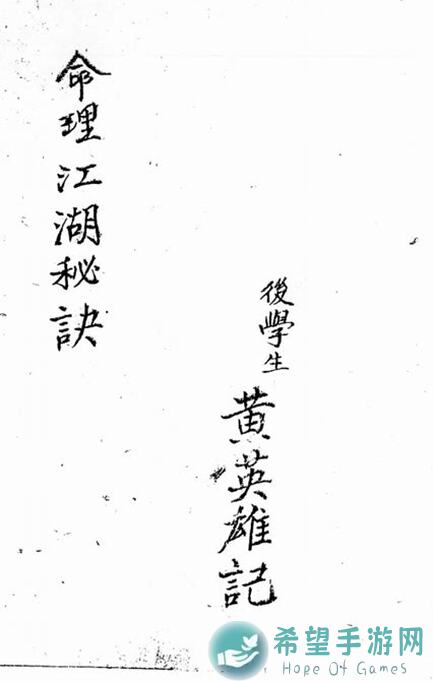 後學生 黃英雄記
命理江湖秘訣
希望手游网
Hope Of Games